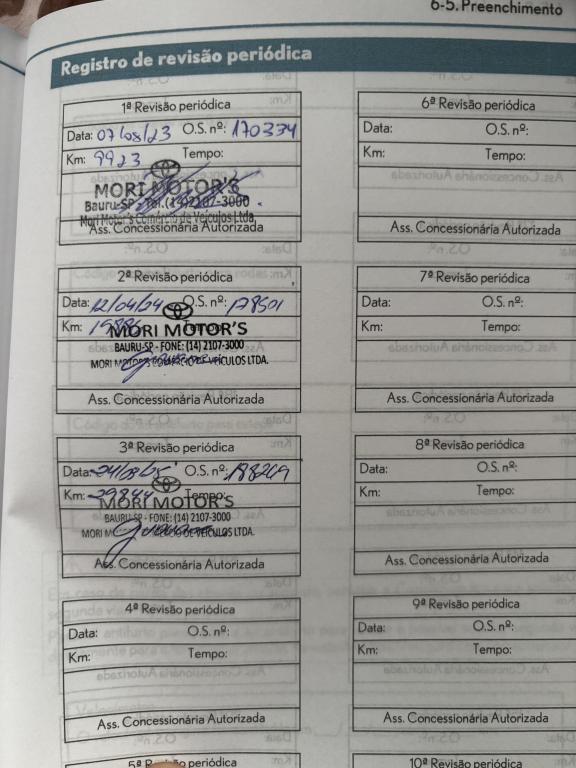 6-5. Preenchimento
Registro de revisão periódica
1ª Revisão periódica
Data: 07/08/23 O.S. nº: 170334
Km: 9923 Tempo:
MORI MOTOR'S
Bauru-SP - Tel.(14)2107-3000
Mori Motor's Comércio de Veículos Ltda.
Ass. Concessionária Autorizada
2ª Revisão periódica
Data: 12/04/24 O.S. nº: 178501
Km: Tempo:
MORI MOTOR'S
BAURU-SP - FONE: (14) 2107-3000
MORI MOTORS COMÉRCIO DE VEÍCULOS LTDA.
Ass. Concessionária Autorizada
3ª Revisão periódica
Data: O.S. nº:
Km: 29844 Tempo:
MORI MOTOR'S
BAURU-SP - FONE: (14) 2107-3000
MORI DE VEÍCULOS LTDA.
Ass. Concessionária Autorizada
4ª Revisão periódica
Data: O.S. nº:
Km: Tempo:
Ass. Concessionária Autorizada
5ª Revisão periódica
6ª Revisão periódica
Data: O.S. nº:
Km: Tempo:
Ass. Concessionária Autorizada
7ª Revisão periódica
Data: O.S. nº:
Km: Tempo:
Ass. Concessionária Autorizada
8ª Revisão periódica
Data: O.S. nº:
Km: Tempo:
Ass. Concessionária Autorizada
9ª Revisão periódica
Data: O.S. nº:
Km: Tempo:
Ass. Concessionária Autorizada
10ª Revisão periódica